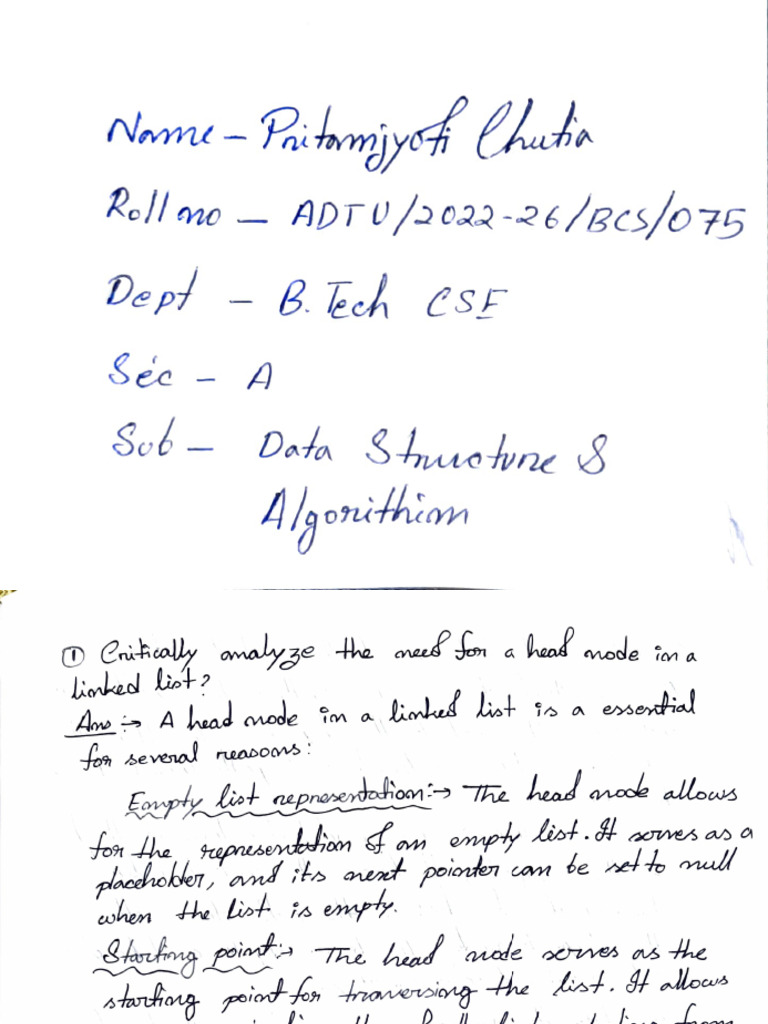 Name - Pritamjyoti Chutia
Roll no - ADTU/2022-26/BCS/075
Dept - B.Tech CSE
Sec - A
Sub - Data Structure &
Algorithim
① Critically analyze the need for a head node in a
linked list?
Ans :→ A head node in a linked list is a essential
for several reasons:
Empty list representation:→ The head node allows
for the representation of an empty list. It serves as a
placeholder, and its next pointer can be set to null
when the list is empty.
Starting point:→ The head node serves as the
starting point for traversing the list. It allows